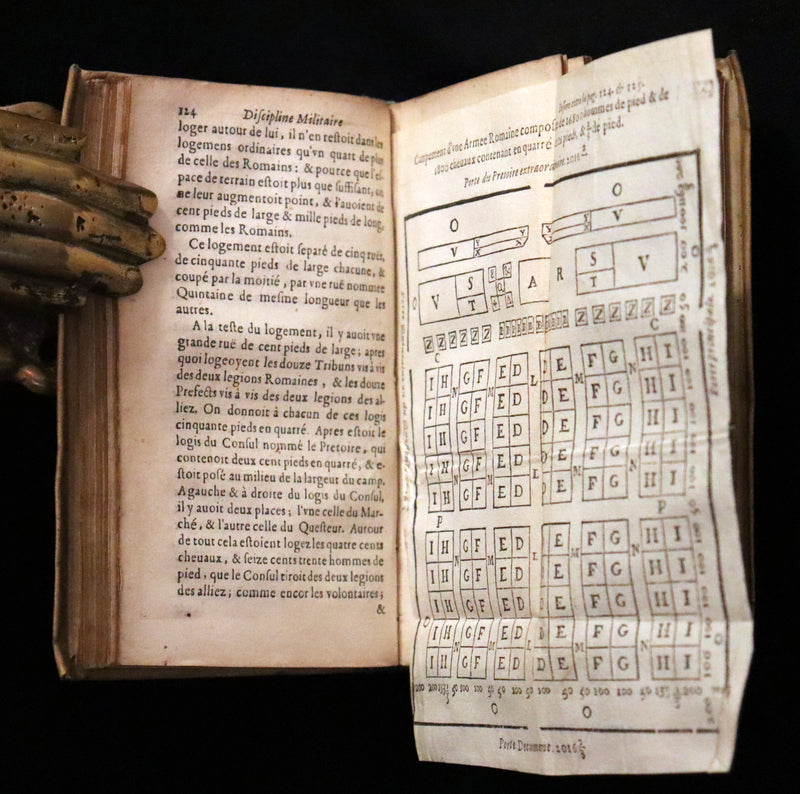 124 Discipline Militaire
loger autour de lui, il n'en restoit dans les
logemens ordinaires qu'vn quart de plus
de celle des Romains : & pource que l'es-
pace de terrain estoit plus que suffisant, on
ne leur augmentoit point, & l'auoient de
cent pieds de large & mille pieds de long,
comme les Romains.
Ce logement estoit separé de cinq ruës,
de cinquante pieds de large chacune, &
coupé par la moitié, par vne ruë nommée
Quintaine de mesme longueur que les
autres.
A la teste du logement, il y auoit vne
grande ruë de cent pieds de large; apres
quoi logeoyent les douze Tribuns vis à vis
des deux legions Romaines, & les douze
Prefects vis à vis des deux legions des al-
liez. On donnoit à chacun de ces logis
cinquante pieds en quarré. Apres estoit le
logis du Consul nommé le Pretoire, qui
contenoit deux cent pieds en quarré, & e-
stoit posé au milieu de la largeur du camp.
A gauche & à droite du logis du Consul,
il y auoit deux places; l'vne celle du Mar-
ché, & l'autre celle du Questeur. Autour
de tout cela estoient logez les quatre cents
cheuaux, & seize cents trente hommes de
pied, que le Consul tiroit des deux legions
des alliez; comme encor les volontaires;
&
pag. 124. & 125.
Campement d'vne Armee Romaine composée de 16800 hommes de pied & de
1800 cheuaux contenant en quarré pieds, & de pied.
Porte du Pretoire extraor
O O
V Y X Y X V
V S T A R S T V
Z Z Z Z Z Z Z Z Z Z Z Z
C C
I H N G F M E D L D E M F G N H I
I H G F E D D E F G H I
I H G F E D D E F G H I
I H N G F M E D L D E M F G N H I
I H G F E D D E F G H I
P P
I H N G F M E D L D E M F G N H I
I H G F E D D E F G H I
I H G F E D D E F G H I
O I H N G F M E D L D E M F G N H I O
I H G F E D D E F G H I
200 50 100 50 100 50 100 50 50 100 100 50 200
O O
Porte Decumene. 2016 2/3